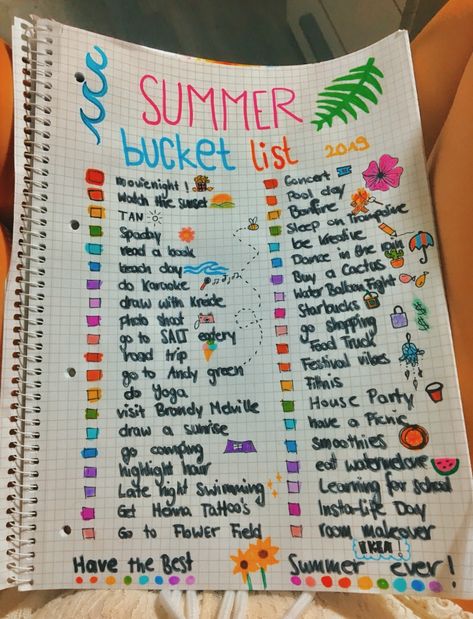 SUMMER
bucket list
2019
movienight!
Watch the sunset
TAN
Spaday
read a book
beach day
do Karaoke
draw with Kreide
Photo shoot
go to SALT eatery
road trip
go to Andy green
do Yoga
visit Brandy Melville
draw a sunrise
go camping
highlight hair
Late night Swimming
Get Henna Tattoo's
Go to Flower Field
Concert
Pool day
Bonfire
Sleep on Trampoline
be Kreative
Dance in the rain
Buy a Cactus
Water Balloon Fight
Starbucks
go shopping
Food Truck
Festival vibes
Fitnis
House Party
have a Picnic
smoothies
eat watermelone
Learning for school
Insta-Life Day
room makeover
IKEA!
Have the Best Summer ever!